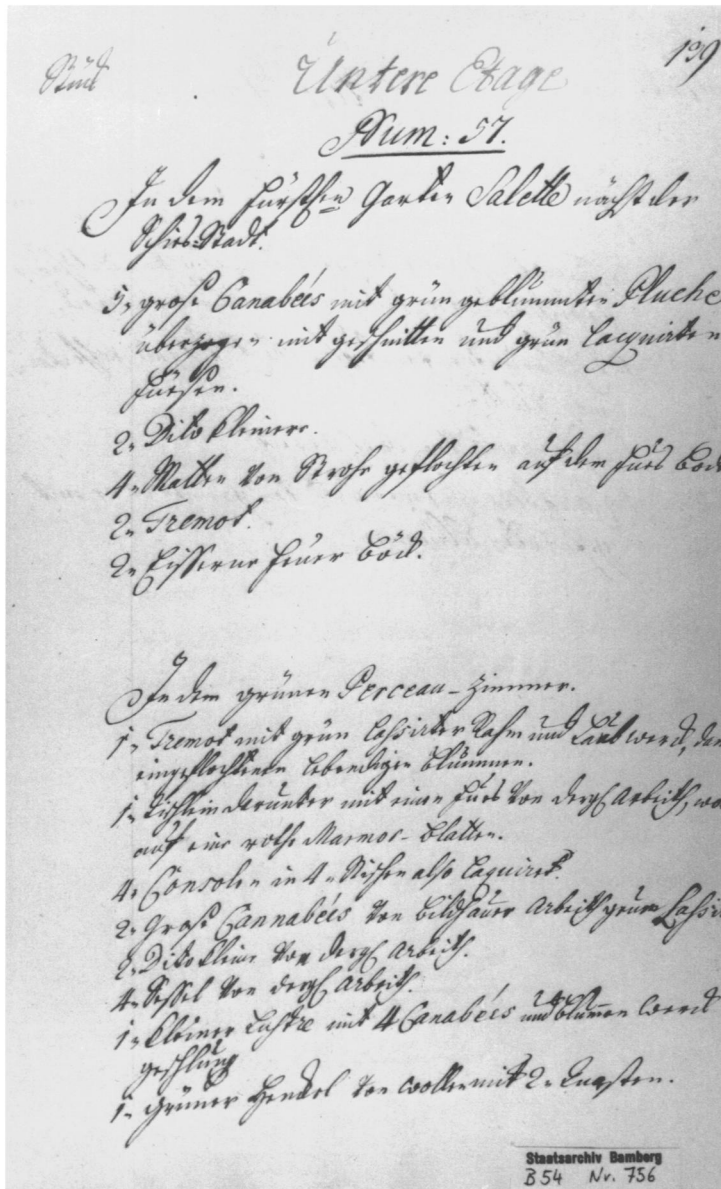 139
Stück
Untere Etage
Num: 57.
In dem Fürstlen Garten Salettl nächst der
Schies-Stadt.
5„ große Canabéés mit grün geblummten Pluche
überzogen mit geschnitten und grün lacquirten
Fuesen.
2„ Dito kleinere.
4„ Matten von Strohe geflochten auf dem Fues Bod
2„ Tremot.
2„ Eisserne Feuer Böck.
In dem grünen Perceau-Zimmer.
1„ Tremot mit grün lassirter Rahm und Laubwerck, dan
eingeflochtene lebendigen Blummen.
1„ Tischlein darunter mit einen Fues von dergl Arbeith, wo
auf eine rothe Marmor-Blatten.
4„ Consolen in 4„ Nischen also laquiret.
2„ Große Cannabéés von Bildhauer Arbeith grün Lassir
2„ Dito kleine von dergl Arbeith.
4„ Sessel von dergl Arbeith.
1„ kleiner Lustre mit 4 Canabéés und Blummen Werck
geschlung
1„ grüner Henckel von Wollen mit 2„ Quasten.
Staatsarchiv Bamberg
B 54 Nr. 756